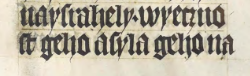 nayſtrahely · wyeczno
ſt geho a ſyla geho na